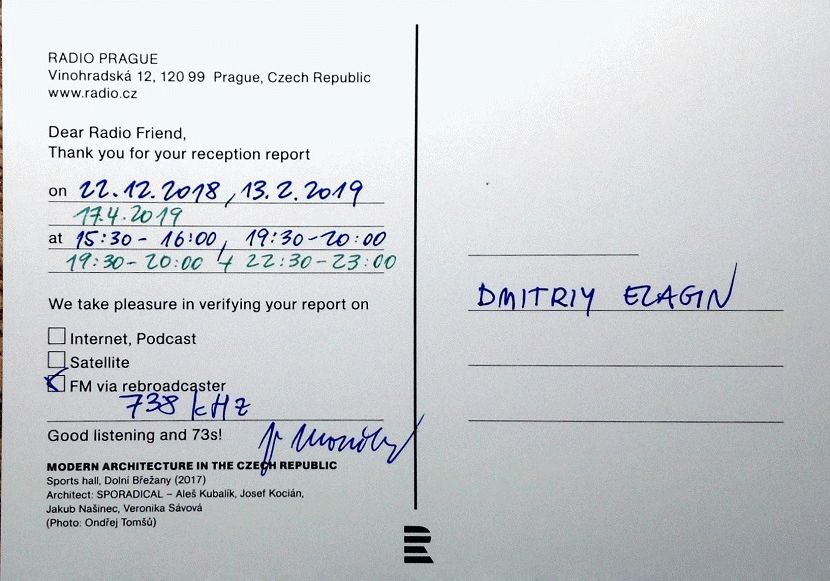 RADIO PRAGUE
Vinohradská 12, 120 99 Prague, Czech Republic
www.radio.cz
Dear Radio Friend,
Thank you for your reception report
on 22.12.2018, 13.2.2019
17.4.2019
at 15:30-16:00, 19:30-20:00
19:30-20:00 + 22:30-23:00
We take pleasure in verifying your report on
Internet, Podcast
Satellite
FM via rebroadcaster
738 kHz
Good listening and 73s!
MODERN ARCHITECTURE IN THE CZECH REPUBLIC
Sports hall, Dolní Břežany (2017)
Architect: SPORADICAL – Aleš Kubalík, Josef Kocián,
Jakub Našinec, Veronika Sávová
(Photo: Ondřej Tomšů)
DMITRIY ELAGIN